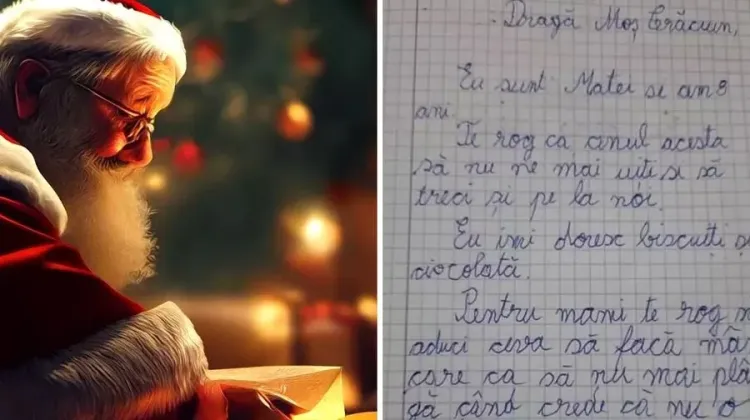 Dragă Moș Crăciun,
Eu sunt Matei si am 8
ani.
Te rog ca anul acesta
să nu ne mai uiti si să
treci și pe la noi.
Eu imi doresc biscuiți
ciocolată.
Pentru mami te rog
aduci ceva să facă mâ
care ca să nu mai plâ
gă când crede că nu o